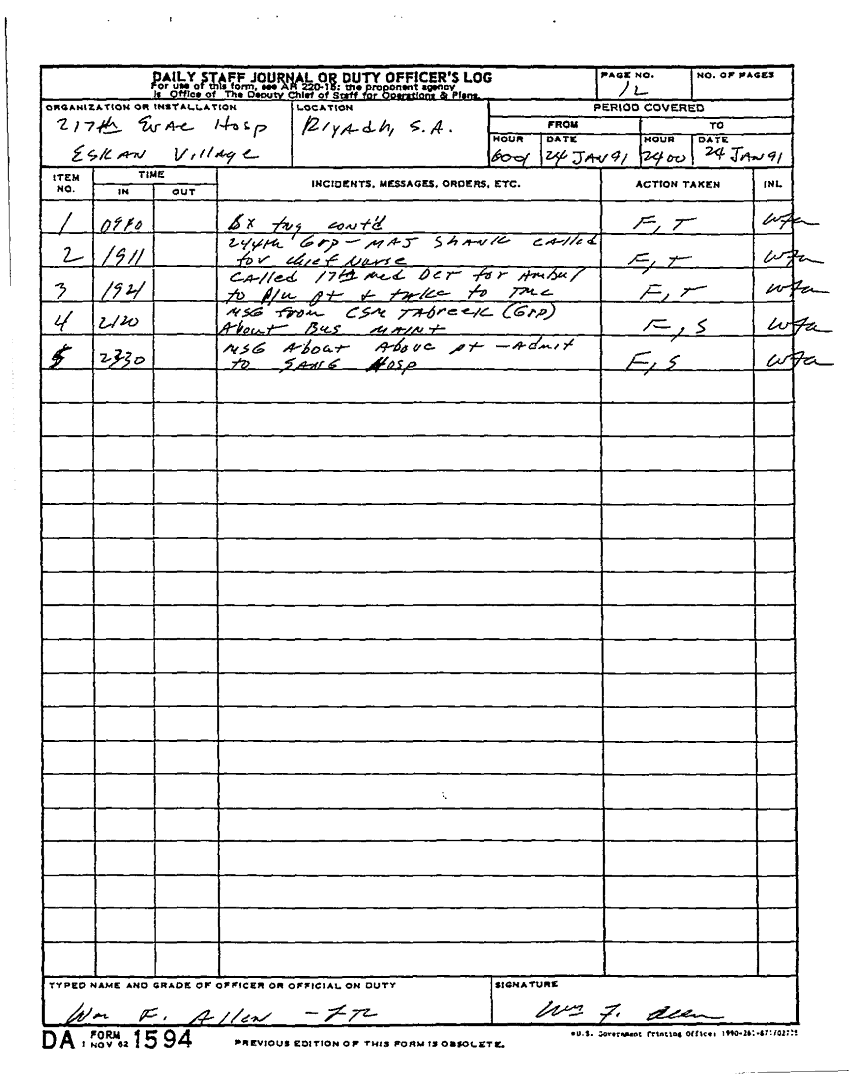 DAILY STAFF JOURNAL OR DUTY OFFICER'S LOG
For use of this form, see AR 220-15; the proponent agency
is Office of The Deputy Chief of Staff for Operations & Plans.
PAGE NO.
12
NO. OF PAGES
ORGANIZATION OR INSTALLATION
217th Evac Hosp
ESKAN Village
LOCATION
Riyadh, S.A.
PERIOD COVERED
FROM
TO
HOUR DATE HOUR DATE
0001 24 JAN 91 2400 24 JAN 91
ITEM NO. TIME IN OUT INCIDENTS, MESSAGES, ORDERS, ETC. ACTION TAKEN INL
1 Bx cont'd F, T wfa
2 1911 244th Grp - MAJ Shank called
for chief Nurse F, T wfa
3 1921 Called 17th med Det for Ambul
to P/U pt & take to TMC F, T wfa
4 2120 MSG from CSM (Grp)
About Bus MAINT F, S wfa
5 2330 MSG About Above pt - Admit
to SANG Hosp F, S wfa
TYPED NAME AND GRADE OF OFFICER OR OFFICIAL ON DUTY
Wm F. Allen
SIGNATURE
Wm F. Allen
DA FORM 1 NOV 62 1594
PREVIOUS EDITION OF THIS FORM IS OBSOLETE.
*U.S. Government Printing Office: 1990-261-871/02715